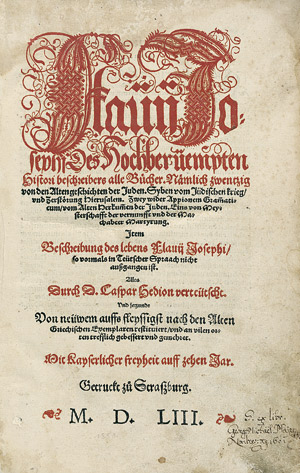 Flavij Jo-
sephi Des Hochberüempten
Histori beschreibers alle Bücher. Nämlich zwentzig
von den Alten geschichten der Juden. Syben vom Jüdischen krieg/
vnd Zerstörung Hierusalem. Zwey wider Appionem Gramati-
cum/ vom Alten Herkumen der Juden. Eins von Mey-
sterschafft der vernunfft vnd der Ma-
chabeer Martyrung.
Item
Beschreibung des lebens Flauij Josephi/
so vormals in Teütscher Spraach nicht
außgangen ist.
Alles
Durch D. Caspar Hedion verteütscht.
Vnd jetzunde
Von neüwem auffs fleyssigst nach den Alten
Griechischen Exemplaren restituiert/ vnd an vilen or-
ten trefflich gebessert vnd gemehret.
Mit Kayserlicher freyheit auff zehen Jar.
Getruckt zů Straßburg.
M. D. LIII.